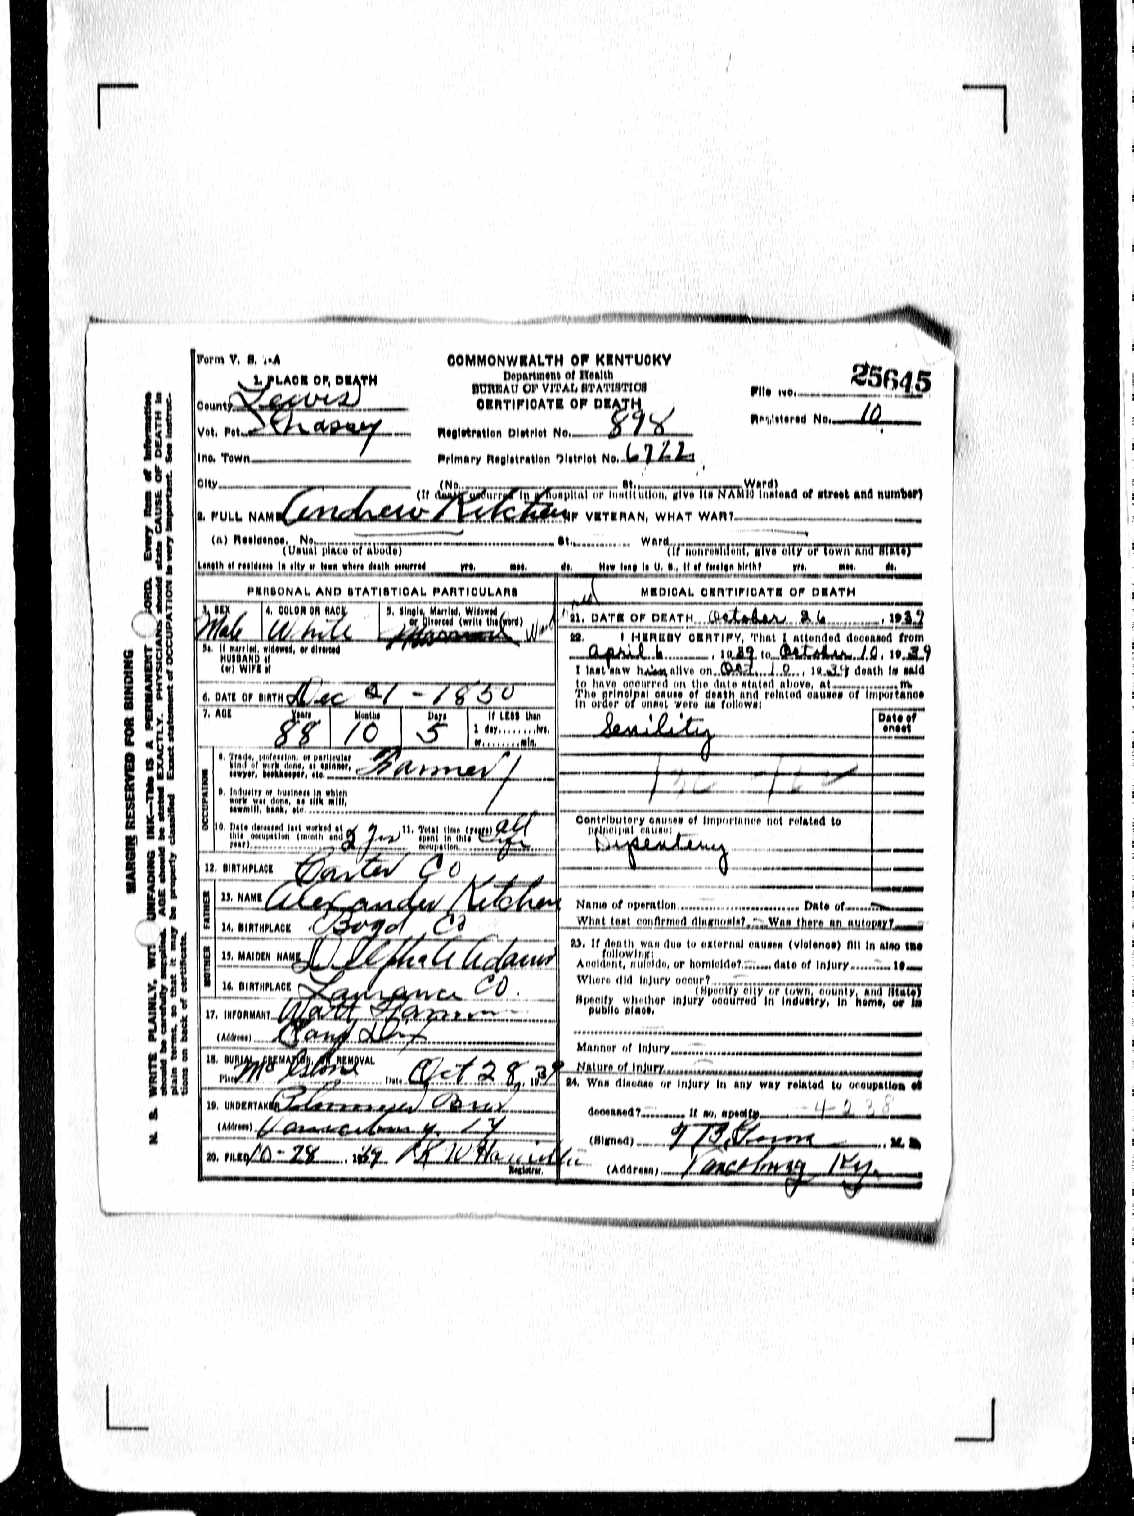 Form V. S. 1-A
COMMONWEALTH OF KENTUCKY
Department of Health
BUREAU OF VITAL STATISTICS
CERTIFICATE OF DEATH
File No. 25645
Registered No. 10
1. PLACE OF DEATH
County Lewis
Vot. Pct.
Registration District No. 898
Inc. Town
Primary Registration District No. 6722
City (No. St. Ward)
(If death occurred in a hospital or institution, give its NAME instead of street and number)
2. FULL NAME Andrew Kitchen IF VETERAN, WHAT WAR?
(a) Residence. No. St. Ward
(Usual place of abode) (If nonresident, give city or town and State)
Length of residence in city or town where death occurred yrs. mos. ds. How long in U. S., if of foreign birth? yrs. mos. ds.
PERSONAL AND STATISTICAL PARTICULARS
3. SEX Male
4. COLOR OR RACE White
5. Single, Married, Widowed or Divorced (write the word)
5a. If married, widowed, or divorced
HUSBAND of
(or) WIFE of
6. DATE OF BIRTH Dec 21 - 1850
7. AGE Years 88 Months 10 Days 5 If LESS than
1 day, hrs.
or min.
OCCUPATION
8. Trade, profession, or particular
kind of work done, as spinner,
sawyer, bookkeeper, etc. Farmer
9. Industry or business in which
work was done, as silk mill,
sawmill, bank, etc.
10. Date deceased last worked at
this occupation (month and
year)
11. Total time (years)
spent in this
occupation all life
12. BIRTHPLACE Carter Co
FATHER
13. NAME Alexander Kitchen
14. BIRTHPLACE Boyd Co
MOTHER
15. MAIDEN NAME Adams
16. BIRTHPLACE Laurance Co.
17. INFORMANT Watt
(Address)
18. BURIAL, CREMATION, OR REMOVAL
Place Date Oct 28, 1939
19. UNDERTAKER Bros
(Address) Vanceburg, Ky
20. FILED 10-28, 1939 R W Registrar.
MEDICAL CERTIFICATE OF DEATH
21. DATE OF DEATH October 26, 1939
22. I HEREBY CERTIFY, That I attended deceased from
April 6, 1939 to October 10, 1939
I last saw him alive on Oct 10, 1939 death is said
to have occurred on the date stated above, at m.
The principal cause of death and related causes of importance
in order of onset were as follows:
Date of onset
Senility
Contributory causes of importance not related to
principal cause:
Dysentery
Name of operation Date of
What test confirmed diagnosis? Was there an autopsy?
23. If death was due to external causes (violence) fill in also the
following:
Accident, suicide, or homicide? date of injury 19
Where did injury occur?
(Specify city or town, county, and State)
Specify whether injury occurred in industry, in home, or in
public place.
Manner of Injury
Nature of Injury
24. Was disease or injury in any way related to occupation of
deceased? If so, specify
(Signed) M. D.
(Address) Vanceburg Ky.
MARGIN RESERVED FOR BINDING
N. B. WRITE PLAINLY, WITH UNFADING INK—This IS A PERMANENT RECORD. Every item of information
should be carefully supplied. AGE should be stated EXACTLY. PHYSICIANS should state CAUSE OF DEATH in
plain terms, so that it may be properly classified. Exact statement of OCCUPATION is very important. See instruc-
tions on back of certificate.